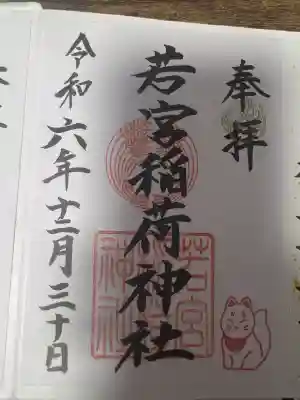 奉拝
若宮稲荷神社
令和六年十二月三十日
若宮
神社